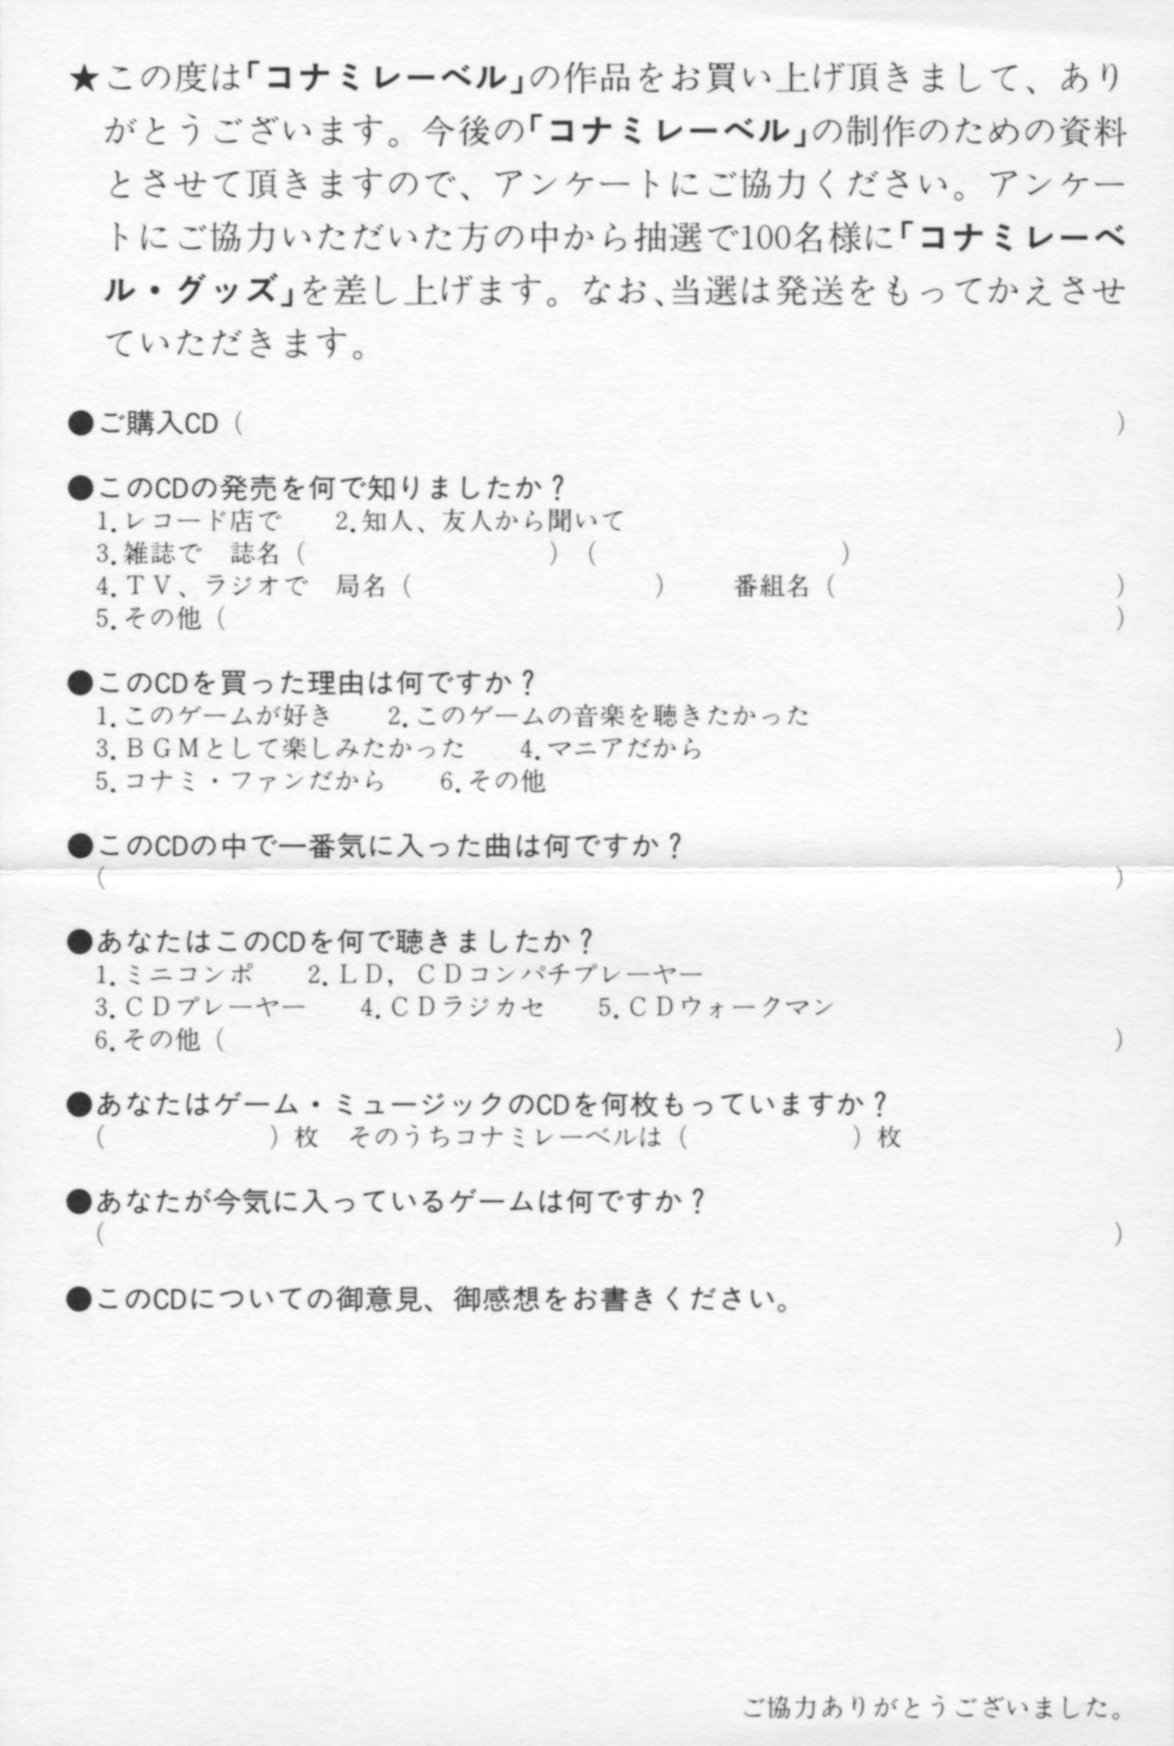 ★この度は「コナミレーベル」の作品をお買い上げ頂きまして、あり
がとうございます。今後の「コナミレーベル」の制作のための資料
とさせて頂きますので、アンケートにご協力ください。アンケー
トにご協力いただいた方の中から抽選で100名様に「コナミレーベ
ル・グッズ」を差し上げます。なお、当選は発送をもってかえさせ
ていただきます。
●ご購入CD（　　　　　）
●このCDの発売を何で知りましたか？
1.レコード店で　　2.知人、友人から聞いて
3.雑誌で　誌名（　　　　　）（　　　　　）
4.ＴＶ、ラジオで　局名（　　　　　）　　番組名（　　　　　）
5.その他（　　　　　）
●このCDを買った理由は何ですか？
1.このゲームが好き　　2.このゲームの音楽を聴きたかった
3.ＢＧＭとして楽しみたかった　　4.マニアだから
5.コナミ・ファンだから　　6.その他
●このCDの中で一番気に入った曲は何ですか？
（　　　　　）
●あなたはこのCDを何で聴きましたか？
1.ミニコンポ　　2.ＬＤ，ＣＤコンパチプレーヤー
3.ＣＤプレーヤー　　4.ＣＤラジカセ　　5.ＣＤウォークマン
6.その他（　　　　　）
●あなたはゲーム・ミュージックのCDを何枚もっていますか？
（　　　　　）枚　そのうちコナミレーベルは（　　　　　）枚
●あなたが今気に入っているゲームは何ですか？
（　　　　　）
●このCDについての御意見、御感想をお書きください。
ご協力ありがとうございました。